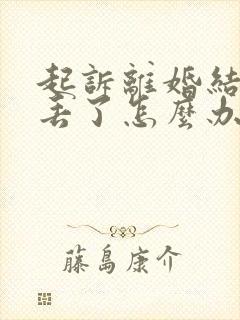 起訴離婚結
丟了怎麼办
藤島康介